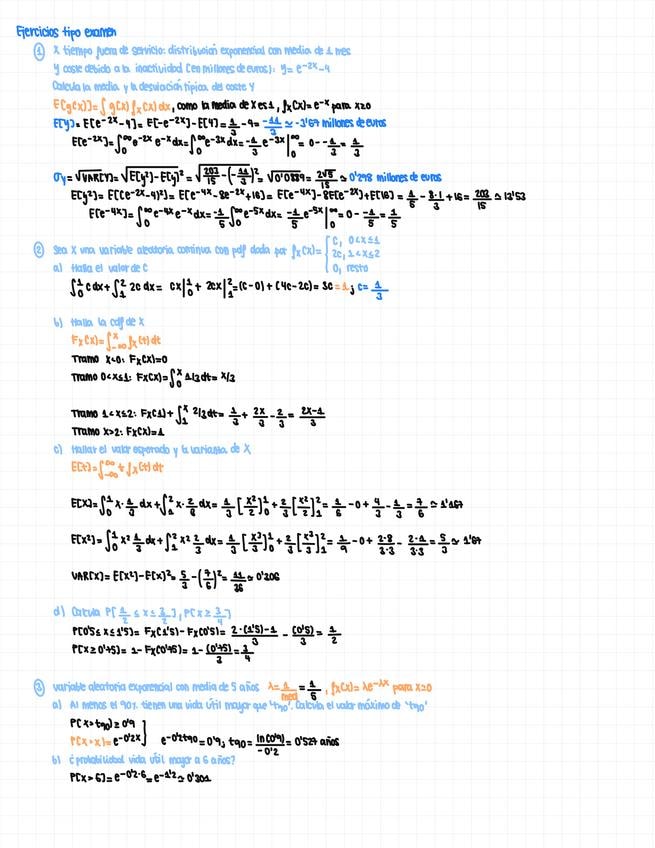 Ejercicios tipo examen
① X tiempo fuera de servicio: distribución exponencial con media de 1 mes
Y coste debido a la inactividad (en millones de euros): Y= e^-2x -4
Calcula la media y la desviación típica del coste Y
E[g(x)]= ∫ g(x) fx(x) dx, como la media de X es 1, fx(x)= e^-x para x≥0
E[Y]= E[e^-2x -4]= E[e^-2x]-E[4]= 1/3 -4= -11/3 ≃ -3'67 millones de euros
E[e^-2x]= ∫_0^∞ e^-2x e^-x dx= ∫_0^∞ e^-3x dx= -1/3 e^-3x |_0^∞ = 0- -1/3 = 1/3
σy= √VAR[Y]= √E[Y²]-E[Y]² = √203/15 -(-11/3)² = √0'0889 = 2√5/15 ≃ 0'298 millones de euros
E[Y²]= E[(e^-2x -4)²]= E[e^-4x -8e^-2x +16]= E[e^-4x]-8E[e^-2x]+E[16]= 1/5 - 8·1/3 +16= 203/15 ≃ 13'53
E[e^-4x]= ∫_0^∞ e^-4x e^-x dx= -1/5 ∫_0^∞ e^-5x dx= -1/5 e^-5x |_0^∞ = 0- -1/5 = 1/5
② Sea X una variable aleatoria continua con pdf dada por fx(x)= { C, 0<x≤1
2C, 1<x≤2
0, resto
a) Halla el valor de C
∫_0^1 c dx+ ∫_1^2 2c dx= cx|_0^1 + 2cx|_1^2 = (c-0)+(4c-2c)= 3c =1; c= 1/3
b) Halla la cdf de X
Fx(x)= ∫_-∞^x fx(t) dt
Tramo x<0: Fx(x)=0
Tramo 0<x≤1: Fx(x)= ∫_0^x 1/3 dt= x/3
Tramo 1<x≤2: Fx(1)+ ∫_1^x 2/3 dt= 1/3 + 2x/3 - 2/3 = 2x-1/3
Tramo x>2: Fx(x)=1
c) Hallar el valor esperado y la varianza de X
E[t]= ∫_-∞^∞ t fx(t) dt
E[X]= ∫_0^1 x· 1/3 dx+ ∫_1^2 x· 2/3 dx= 1/3 [x²/2]_0^1 + 2/3 [x²/2]_1^2 = 1/6 -0+ 4/3 - 1/3 = 7/6 ≃ 1'167
E[X²]= ∫_0^1 x² 1/3 dx+ ∫_1^2 x² 2/3 dx= 1/3 [x³/3]_0^1 + 2/3 [x³/3]_1^2 = 1/9 -0+ 2·8/3·3 - 2·1/3·3 = 5/3 ≃ 1'67
VAR[X]= E[X²]-E[X]²= 5/3 -(7/6)² = 11/36 ≃ 0'306
d) Calcula P[1/2 ≤ x ≤ 3/2], P[X ≥ 3/4]
P[0'5 ≤ x ≤ 1'5]= Fx(1'5)- Fx(0'5)= 2·(1'5)-1/3 - (0'5)/3 = 1/2
P[X ≥ 0'75]= 1- Fx(0'75)= 1- (0'75)/3 = 3/4
③ variable aleatoria exponencial con media de 5 años λ= 1/med = 1/5, fx(x)= λe^-λx para x≥0
a) Al menos el 90% tienen una vida útil mayor que 't90'. Calcula el valor máximo de 't90'
P[X>t90]≥ 0'9
P[X>x]= e^-0'2x } e^-0'2t90 = 0'9; t90= ln(0'9)/-0'2 = 0'527 años
b) ¿probabilidad vida útil mayor a 6 años?
P[X>6]= e^-0'2·6 = e^-1'2 ≃ 0'301